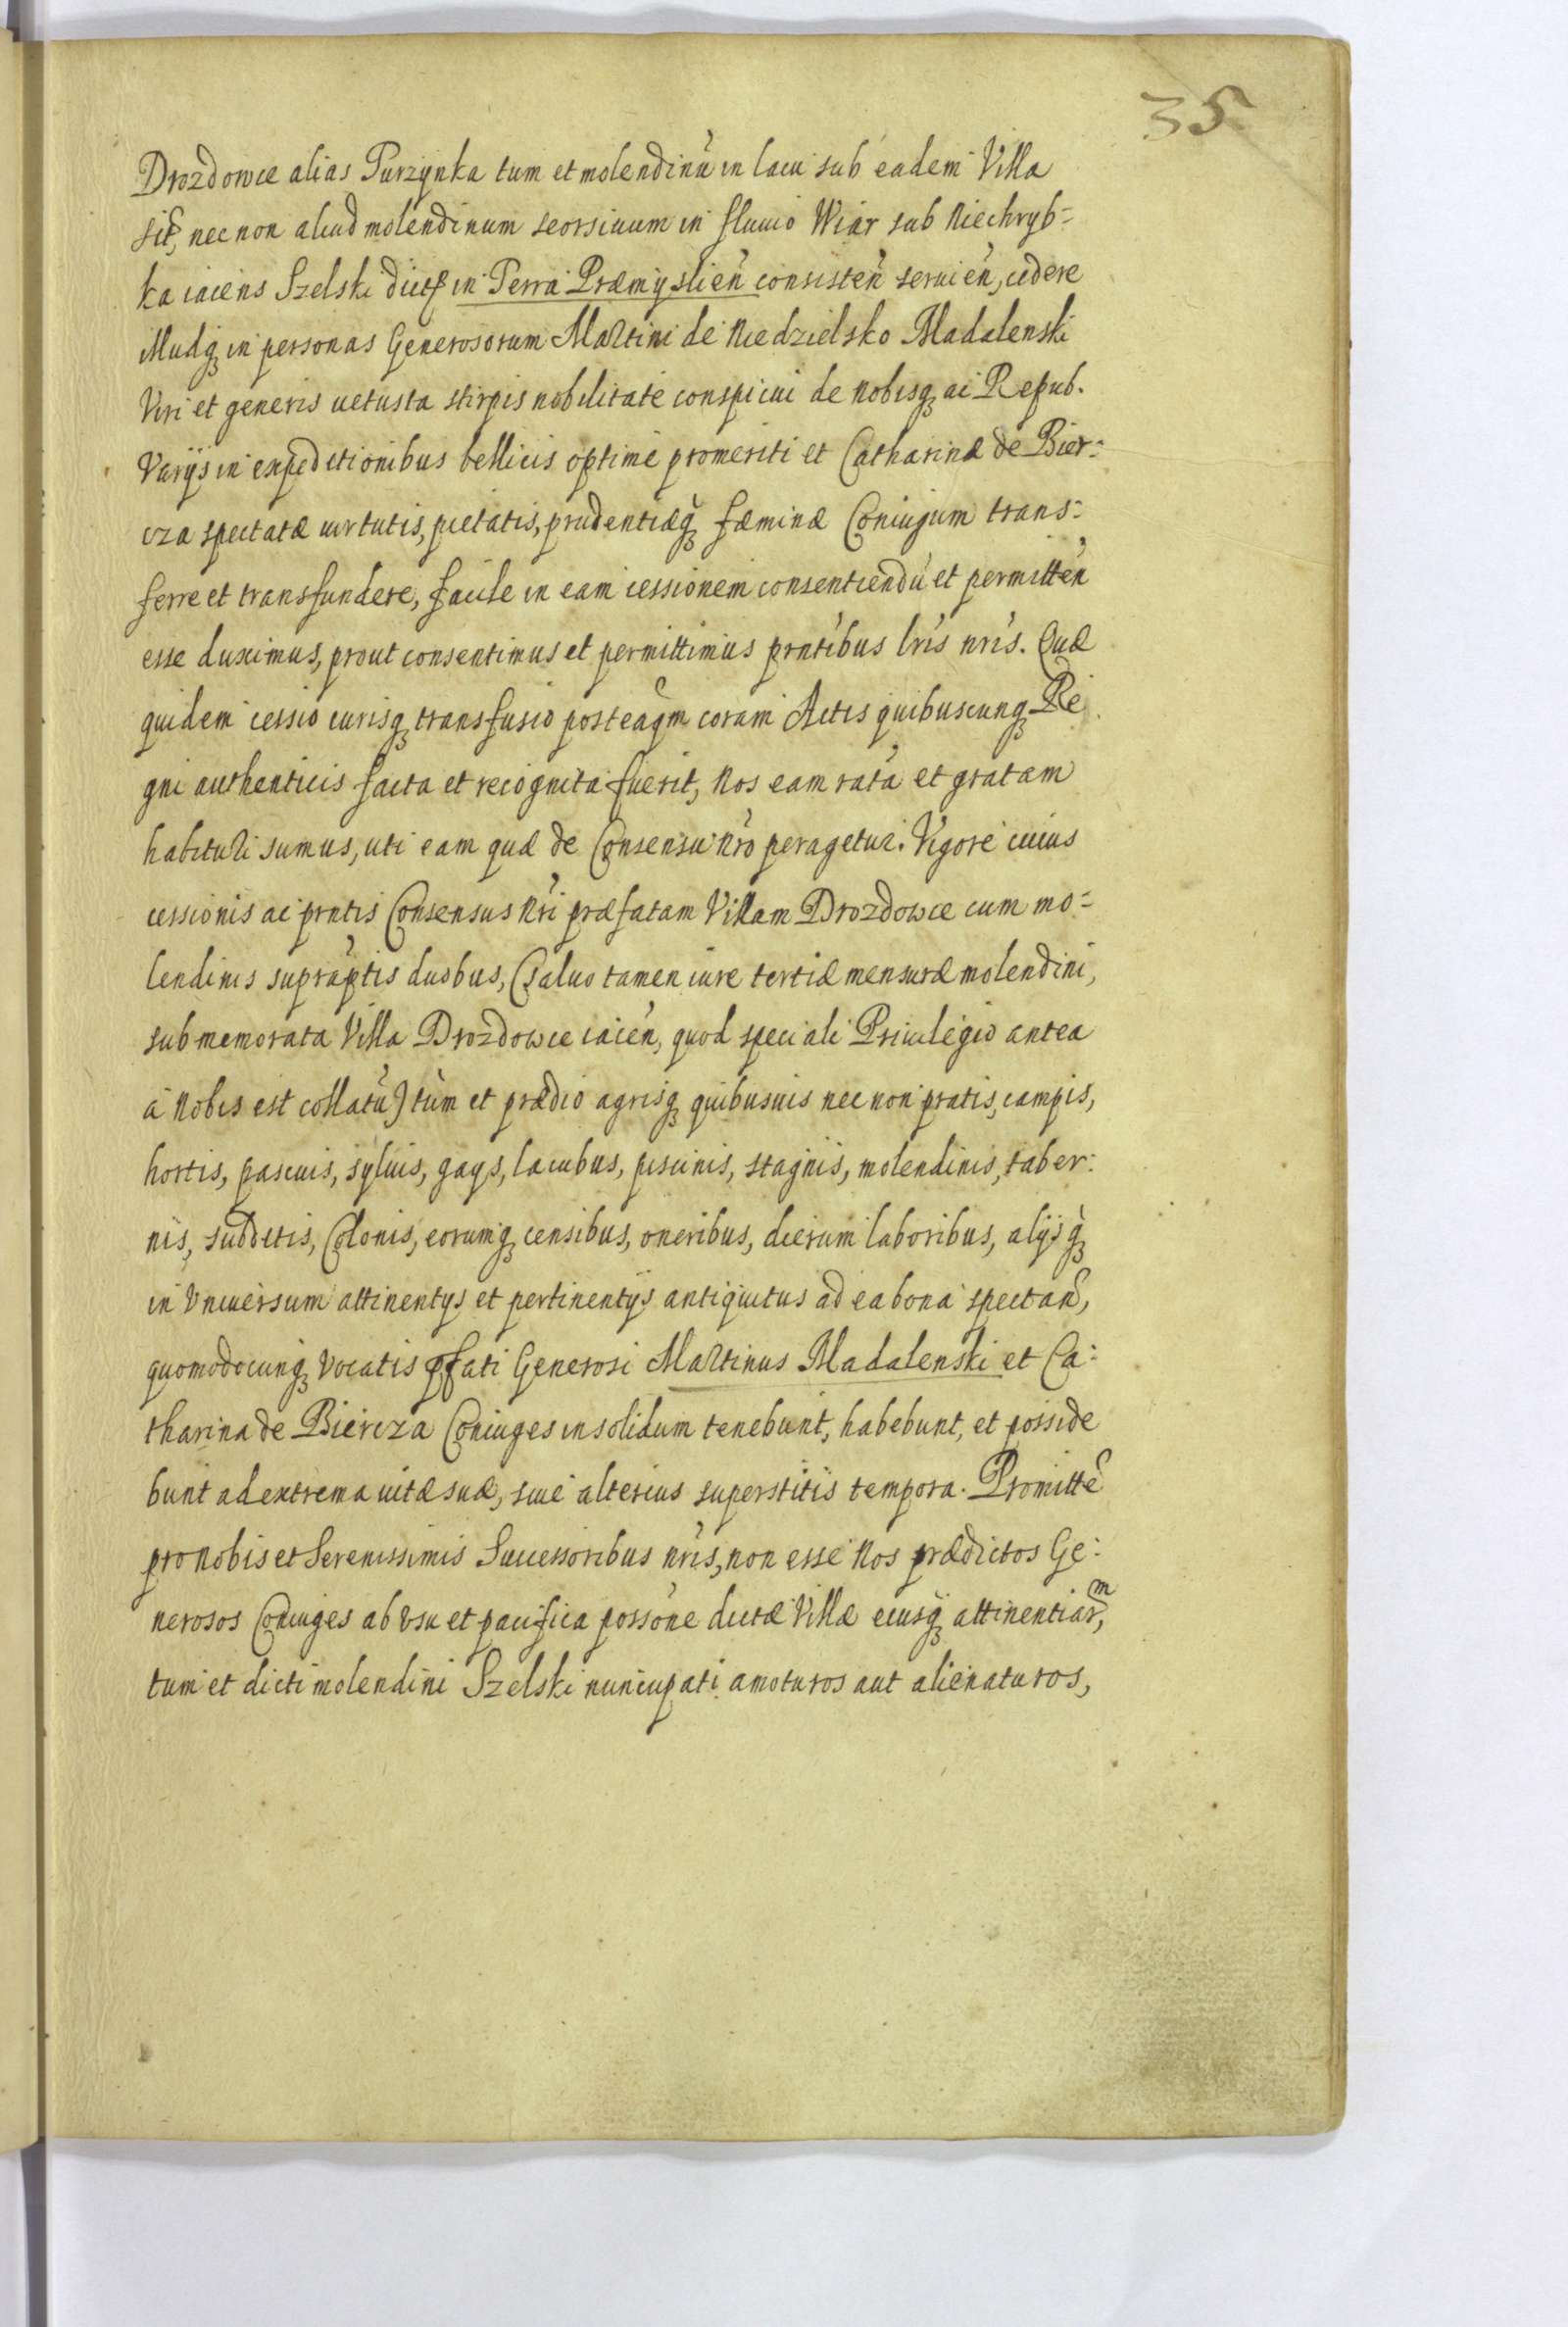 35
Drozdowce alias Purzynka tum et molendinũ in lacu sub eadem Villa
sit̃, nec non aliud molendinum seorsiuum in fluuio Wiár sub Niechryb=
ka iacens Szelski dict in Terra Præmyslien̄ consisten̄ seruien̄, cedere
illudq́ in personas Generosorum Martini de Niedzielsko Madalenski
Viri et generis uetusta stirpis nobilitate conspicui de nobisq́ ac Repub.
Varijs in expeditionibus bellicis optime promeriti et Catharinæ de Bier=
cza spectatæ uirtutis, pietatis, prudentiæq́ fæminæ Coniugum trans=
ferre et transfundere, facile in eam cessionem consentiendũ et permitten̄
esse duximus, prout consentimus et permittimus pñtibus lris nris. Quæ
quidem cessio iurisq́ transfusio posteaq̃m coram Actis quibuscunq́ Re
gni authenticis facta et recognita fuerit, Nos eam ratã et gratam
habituri sumus, uti eam quæ de Consensu Nro peragetur. Vigore cuius
cessionis ac pñtis Consensus Nri præfatam Villam Drozdowce cum mo=
lendinis supraptis duobus, (saluo tamen iure tertiæ mensuræ molendini,
sub memorata Villa Drozdowce iacen̄, quod speciali Priuilegio antea
a Nobis est collatũ) tum et prædio agrisq́ quibusuis nec non pratis, campis,
hortis, pascuis, syluis, gays, lacubus, piscinis, stagnis, molendinis, taber=
nis, subditis, Colonis, eorumq́ censibus, oneribus, dierum laboribus, alijsq́
in Vniuersum attinentys et pertinentijs antiquitus ad ea bona spectan̄,
quomodocunq́ vocatis pfati Generosi Martinus Madalenski et Ca=
tharina de Biercza Coniuges in solidum tenebunt, habebunt, et posside
bunt ad extrema uitæ suæ, siue alterius superstitis tempora. Promitte
pro Nobis et Serenissimis Successoribus nris, non esse Nos prædictos Ge=
nerosos Coniuges ab vsu et pacifica possõne dictæ Villæ eiusq́ attinentiarm,
tum et dicti molendini Szelski nuncupati amoturos aut alienaturos,